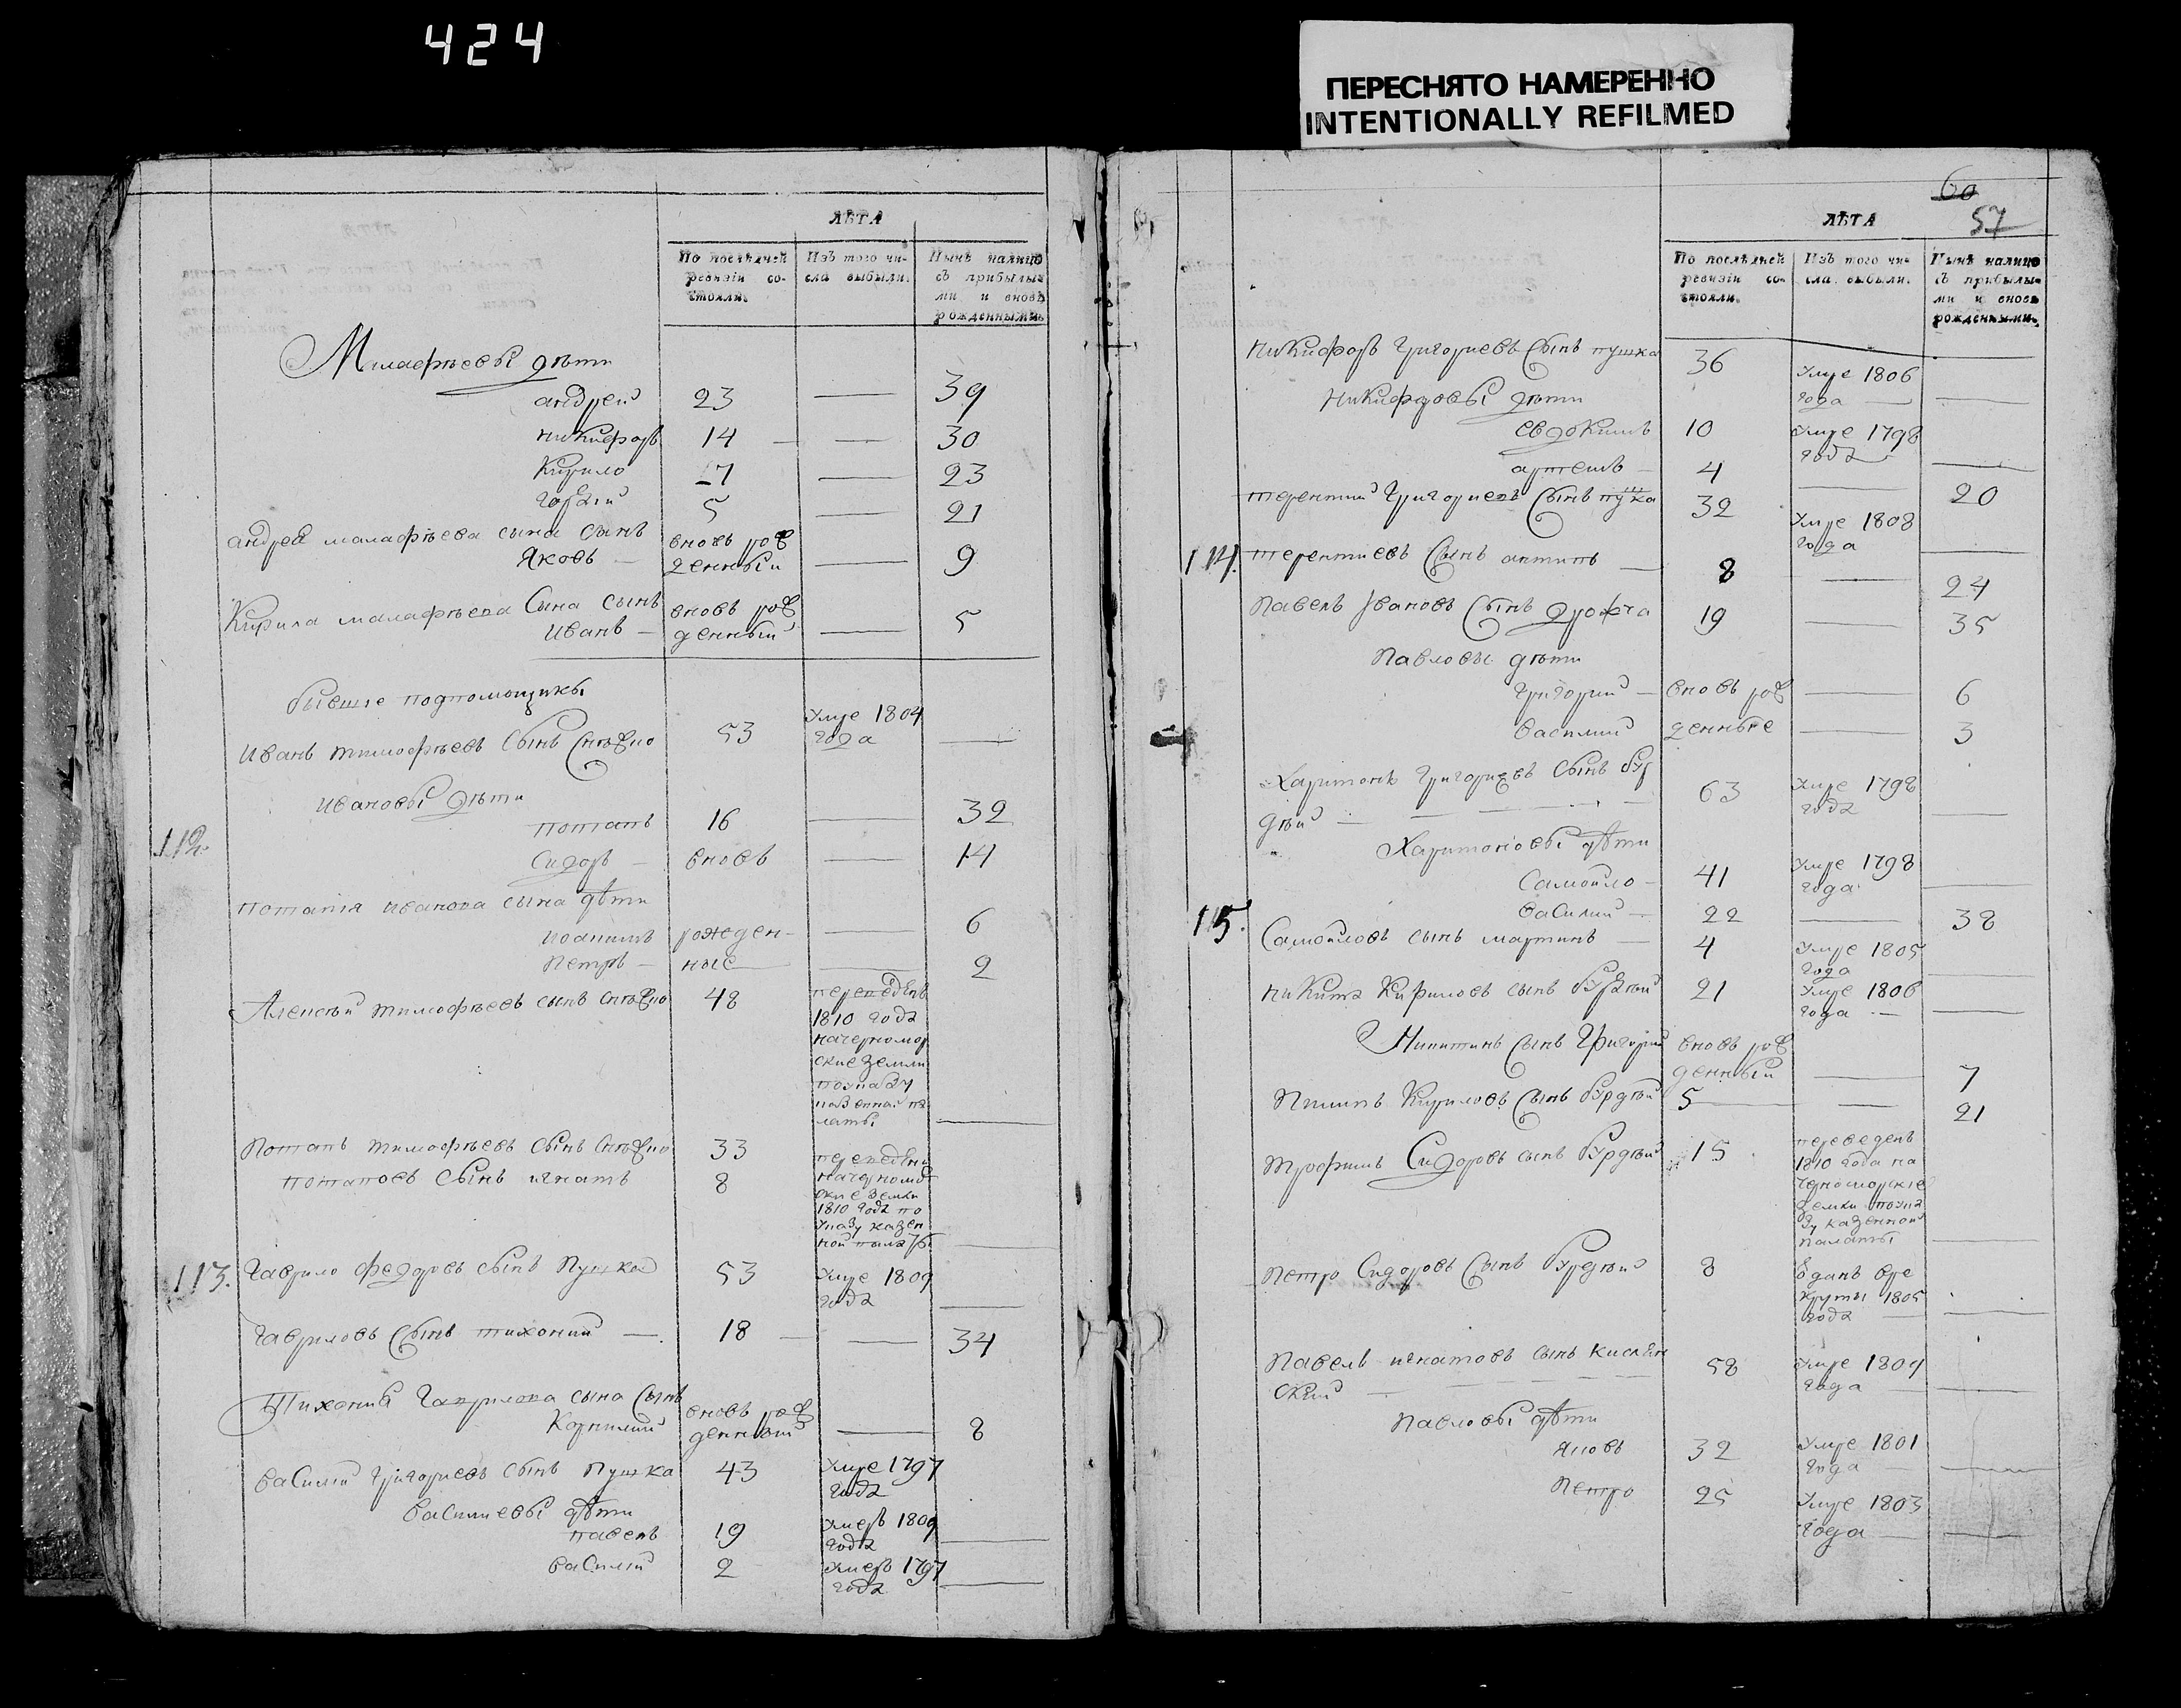 424
ПЕРЕСНЯТО НАМЕРЕННО
INTENTIONALLY REFILMED
ЛѢТА
По послѣдней ревизіи состояли.
Изъ того числа выбыли.
Нынѣ налицо съ прибылыми и вновь рожденными.
Малафѣевы дѣти
андрей 23 — 39
никифоръ 14 — 30
Кирило 7 — 23
5 — 21
андрея малафѣева сына сынъ вновь рож
Яковъ — денный — 9
Кирила малафѣева сына сынъ вновь рож
иванъ — денный — 5
бывшіе подпомощики
иванъ тимофѣевъ сынъ 53 умре 1804 года —
ивановы дѣти
112.
потапъ 16 — 32
сидоръ — вновь — 14
потапія иванова сына дѣти
иоакимъ рожден- — 6
петръ — ные — 2
Алексѣй тимофѣевъ сынъ 48 переведенъ
1810 года
на черномор
ские земли
по указу
казенной па
латы —
Потапъ тимофѣевъ сынъ 33 переведены
потаповъ сынъ игнатъ 8 на черномор
ские земли
1810 года по
указу казен
ной палаты —
113. Гаврило федоровъ сынъ Пушка 53 умре 1809
года —
гавриловъ сынъ тихоний — 18 — — 34
Тихония Гаврилова сына сынъ вновь рож
Корнилий денный — 8
василий григориевъ сынъ пушка 43 умре 1797
года
василиевы дѣти
павелъ 19 умеръ 1809
года —
василий 2 умеръ 1797
года —
60
57
ЛѢТА
По послѣдней ревизіи состояли.
Изъ того числа выбыли.
Нынѣ налицо съ прибылыми и вновь рожденными.
никифоръ григориевъ сынъ пушка 36 умре 1806
года — —
никифоровы дѣти
евдокимъ 10 умре 1798
года —
артемъ — 4 — 20
терентий григориевъ сынъ пушка 32 умре 1808
года —
114. терентиевъ сынъ антипъ — 8 — 24
павелъ ивановъ сынъ 19 — 35
павловы дѣти
григорий — вновь рож — 6
василий денные — 3
Харитонъ григориевъ сынъ бур 63 умре 1798
дѣй — года —
Харитоновы дѣти
Самойло — 41 умре 1798
года —
василий — 22 — 38
115. Самойловъ сынъ мартинъ — 4 умре 1805
года —
никита Кириловъ сынъ бурдѣй 21 умре 1806
года — —
Никитинъ сынъ григорий вновь рож
денный — 7
Кириловъ сынъ бурдѣй 5 — 21
трофимъ Сидоровъ сынъ бурдѣй 15 переведенъ
1810 года на
черноморские
земли по ука
зу казенной
палаты —
петро Сидоровъ сынъ бурдѣй 8 вданъ вре
круты 1805
года —
павелъ игнатовъ сынъ 58 умре 1809
ский — года —
павловы дѣти
яковъ 32 умре 1801
года —
петро 25 умре 1803
года —